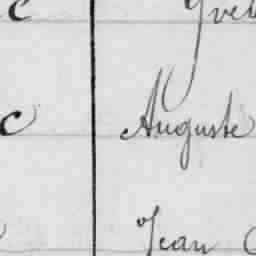 c
c Auguste
Jean